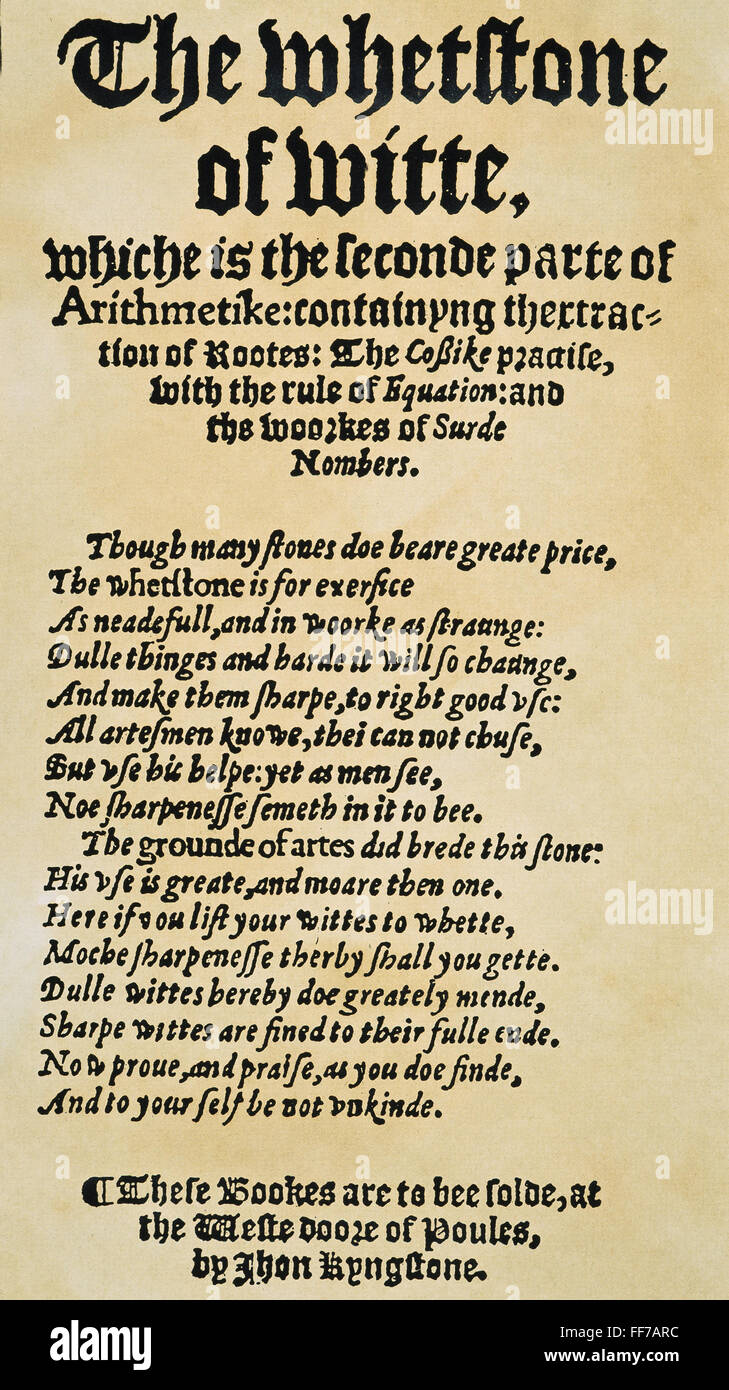 The whetſtone
of witte,
whiche is the ſeconde parte of
Arithmetike: containyng thextrac-
tion of Rootes: The Coßike practiſe,
with the rule of Equation: and
the woorkes of Surde
Nombers.
Though many ſtones doe beare greate price,
The whetſtone is for exerſice
As neadefull, and in woorke as ſtraunge:
Dulle thinges and harde it will ſo chaunge,
And make them ſharpe, to right good vſe:
All arteſmen knowe, thei can not chuſe,
But vſe his helpe: yet as men ſee,
Noe ſharpeneſſe ſemeth in it to bee.
The grounde of artes did brede this ſtone:
His vſe is greate, and moare then one.
Here if you liſt your wittes to whette,
Moche ſharpeneſſe therby ſhall you gette.
Dulle wittes hereby doe greately mende,
Sharpe wittes are fined to their fulle ende.
Now proue, and praiſe, as you doe finde,
And to your ſelf be not vnkinde.
¶ Theſe Bookes are to bee ſolde, at
the Weſte doore of Poules,
by Jhon Kyngſtone.
alamy
alamy
alamy
alamy
Image ID: FF7ARC
www.alamy.com